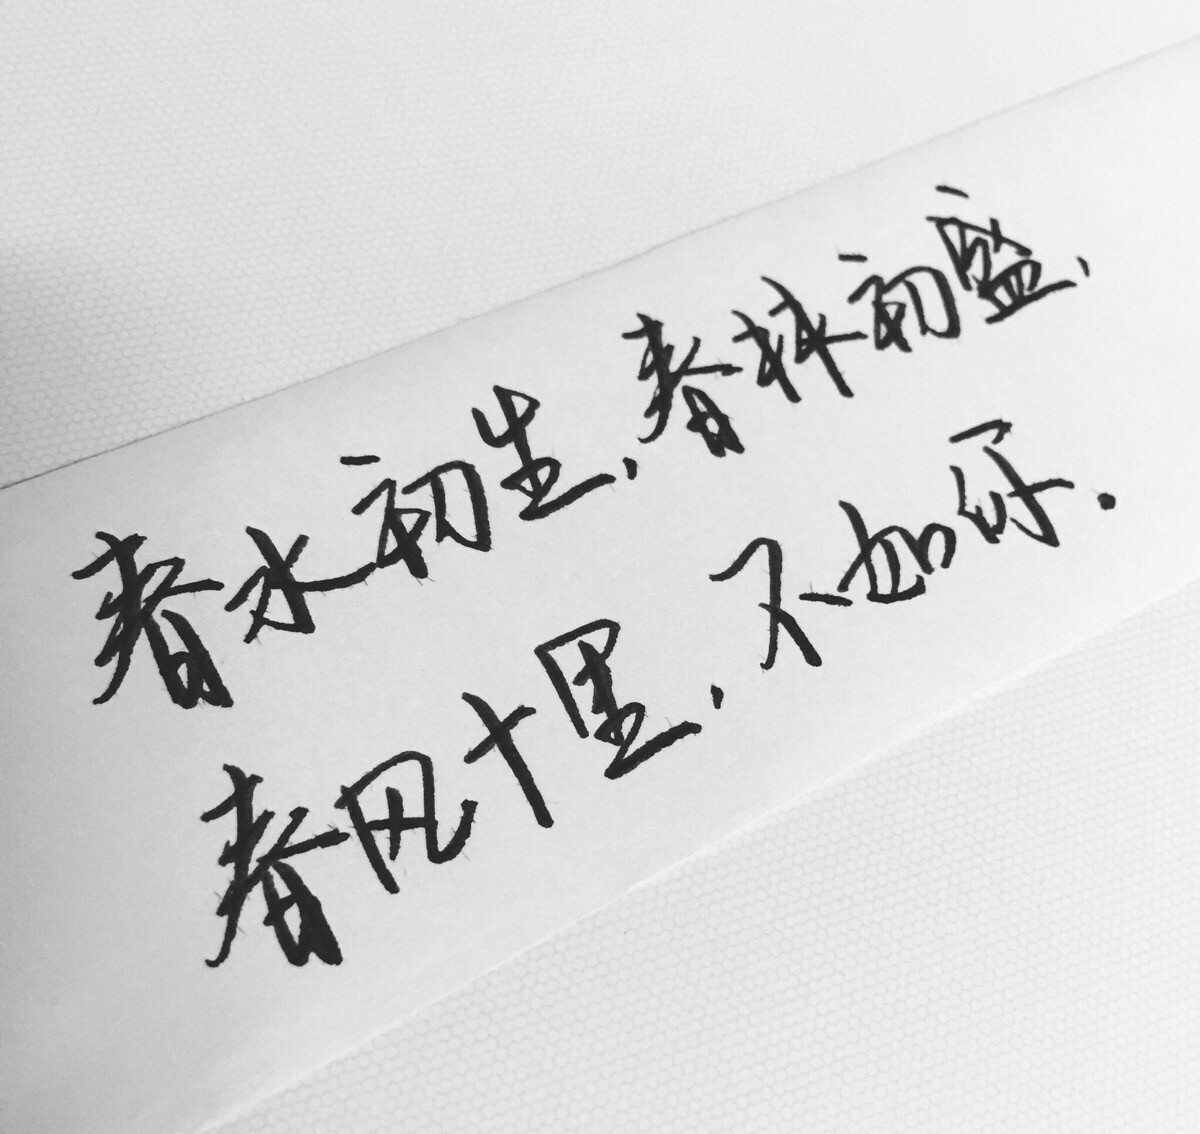 春水初生、春林初盛、
春风十里、不如你.